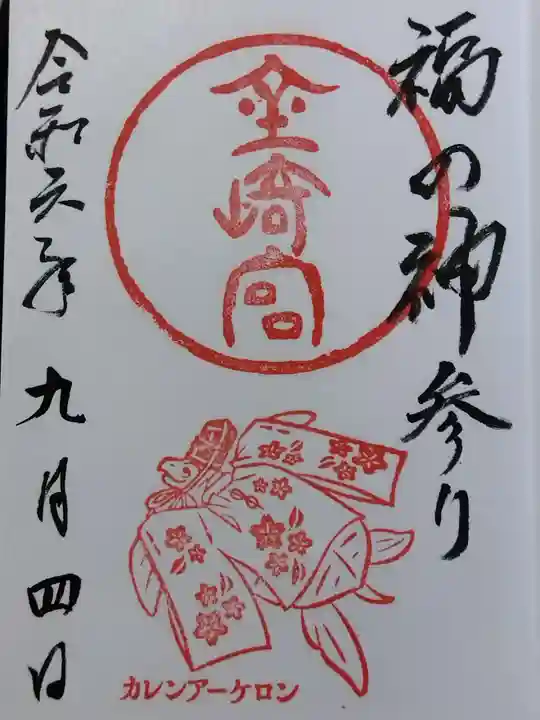 福の神参り
金崎宮
令和六年 九月四日
カレンアーケロン